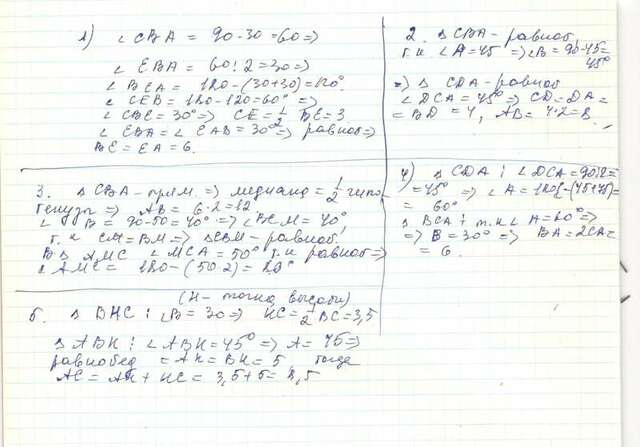 1) ∠CBA = 90-30=60=>
∠EBA = 60:2=30=>
∠BEA = 180-(30+30)=120°
∠CEB = 180-120=60° =>
∠CBE=30° => CE=1/2 BE=3
∠EBA=∠EAB=30° => равноб=>
BE=EA=6.
2. ΔCBA-равноб,
т.к ∠A=45° =>∠B=90-45=
45°
=> Δ CDA-равноб
∠DCA=45°=> CD=DA=
=BD=4, AB=4·2=8.
3. ΔCBA-прям. => медиана=1/2 гипо-
тенузы => AB=6·2=12
∠B=90-50=40°=>∠BCM=40°
т.к CM=BM=>ΔCBM-равноб,
В Δ AMC ∠MCA=50° т.к равноб=>
∠AMC=180-(50·2)=80°
4) Δ CDA: ∠DCA=90:2=
=45° => ∠A=180-(75+45)=
=60°
Δ BCA: т.к ∠A=60°=>
=> B=30° => BA=2CA=
=6.
(H-точка высоты)
5. Δ BHC: ∠B=30=> HC=1/2 BC=3,5
Δ ABH: ∠ABH=45° => A=45=>
равнобед =AH=BH=5 тогда
AC=AH+HC=3,5+5=8,5